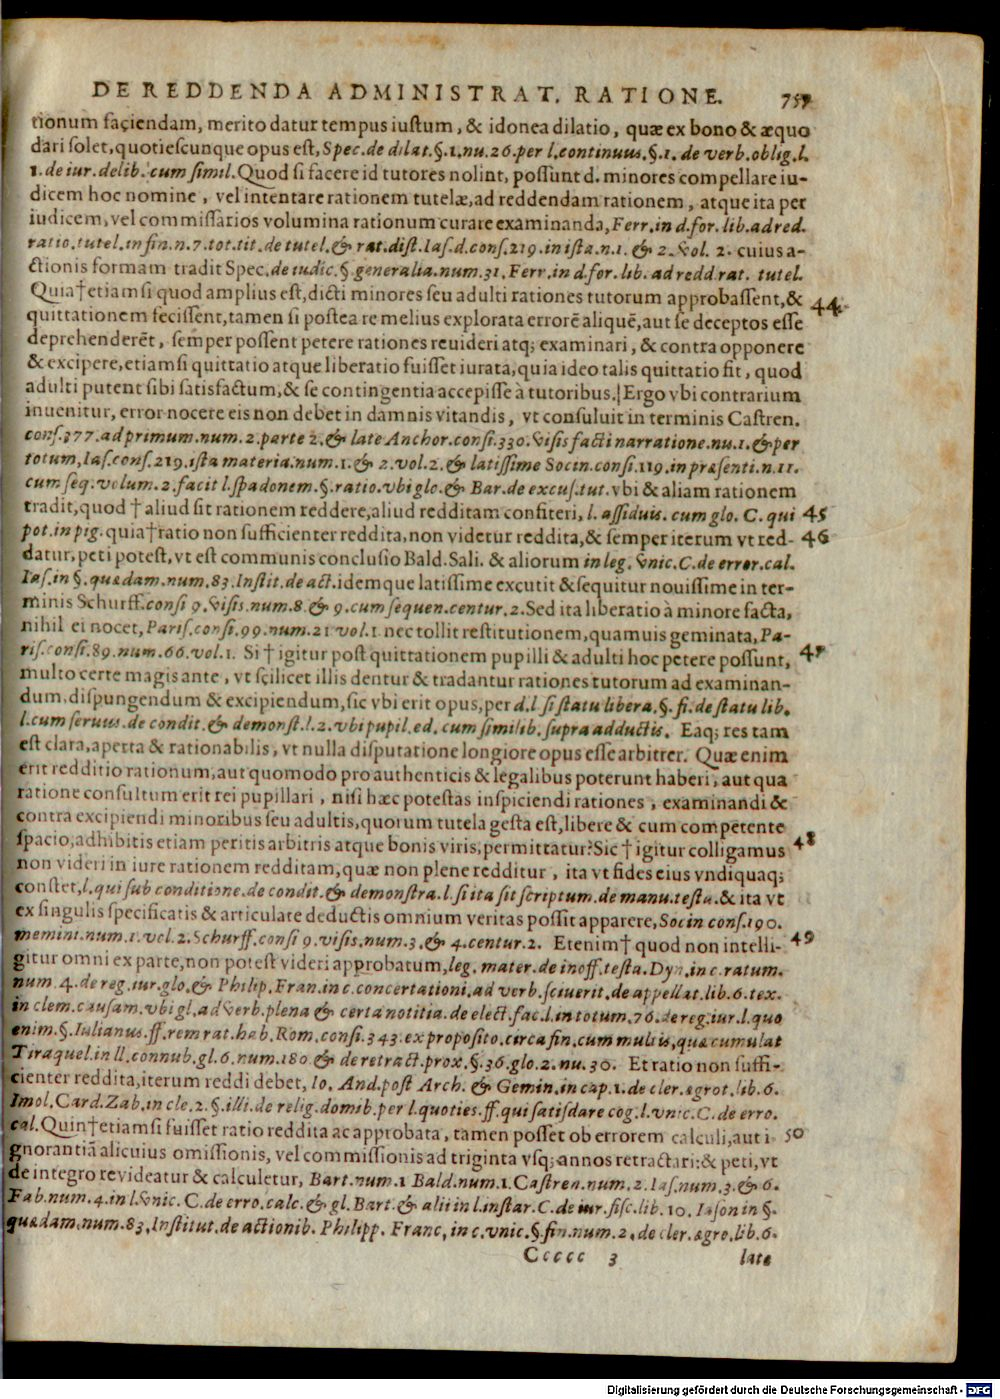 DE REDDENDA ADMINISTRAT. RATIONE. 757
tionum faciendam, merito datur tempus iustum, & idonea dilatio, quæ ex bono & æquo
dari solet, quotiescunque opus est, Spec. de dilat. §. 1. nu. 26. per l. continuus. §. 1. de verb. oblig. l.
1. de iur. delib. cum simil. Quod si facere id tutores nolint, possunt d. minores compellare iu-
dicem hoc nomine, vel intentare rationem tutelæ, ad reddendam rationem, atque ita per
iudicem, vel commissarios volumina rationum curare examinanda, Ferr. in d. for. lib. ad red.
ratio. tutel. in fin. n. 7. tot. tit. de tutel. & rat. dist. Ias. d. cons. 219. in ista. n. 1. & 2. vol. 2. cuius a-
ctionis formam tradit Spec. de iudic. § generalia. num. 31. Ferr. in d. for. lib. ad redd rat. tutel.
Quia † etiamsi quod amplius est, dicti minores seu adulti rationes tutorum approbassent, & 44
quittationem fecissent, tamen si postea re melius explorata errorē aliquē, aut se deceptos esse
deprehenderēt, semper possent petere rationes reuideri atq; examinari, & contra opponere
& excipere, etiamsi quittatio atque liberatio fuisset iurata, quia ideo talis quittatio fit, quod
adulti putent sibi satisfactum, & se contingentia accepisse à tutoribus. Ergo vbi contrarium
inuenitur, error nocere eis non debet in damnis vitandis, vt consuluit in terminis Castren.
cons. 377. ad primum. num. 2. parte 2. & late Anchor. consi. 330. visis facti narratione. nu. 1. & per
totum, Ias. cons. 219. ista materia. num. 1. & 2. vol. 2. & latissime Socin. consi. 119. in præsenti. n. 11.
cum seq. volum. 2. facit l. spadonem. §. ratio. vbi glo. & Bar. de excus. tut. vbi & aliam rationem
tradit, quod † aliud sit rationem reddere, aliud redditam confiteri, l. assiduis. cum glo. C. qui 45
pot. in pig. quia † ratio non sufficienter reddita, non videtur reddita, & semper iterum vt red- 46
datur, peti potest, vt est communis conclusio Bald. Sali. & aliorum in leg. vnic. C. de error. cal.
Ias. in §. quædam. num. 83. Instit. de act. idemque latissime excutit & sequitur nouissime in ter-
minis Schurff. consi 9. visis. num. 8. & 9. cum sequen. centur. 2. Sed ita liberatio à minore facta,
nihil ei nocet, Paris. consi. 99. num. 21 vol. 1. nec tollit restitutionem, quamuis geminata, Pa-
ris. consi. 89. num. 66. vol. 1. Si † igitur post quittationem pupilli & adulti hoc petere possunt, 47
multo certe magis ante, vt scilicet illis dentur & tradantur rationes tutorum ad examinan-
dum, dispungendum & excipiendum, sic vbi erit opus, per d. l. si statu libera. §. fi. de statu lib.
l. cum seruus. de condit. & demonst. l. 2. vbi pupil. ed. cum similib. supra adductis. Eaq; res tam
est clara, aperta & rationabilis, vt nulla disputatione longiore opus esse arbitrer. Quæ enim
erit redditio rationum, aut quomodo pro authenticis & legalibus poterunt haberi, aut qua
ratione consultum erit rei pupillari, nisi hæc potestas inspiciendi rationes, examinandi &
contra excipiendi minoribus seu adultis, quorum tutela gesta est, libere & cum competente
spacio, adhibitis etiam peritis arbitris atque bonis viris, permittatur? Sic † igitur colligamus 48
non videri in iure rationem redditam, quæ non plene redditur, ita vt fides eius vndiquaq;
constet, l. qui sub conditione. de condit. & demonstra. l. si ita sit scriptum. de manu. testa. & ita vt
ex singulis specificatis & articulate deductis omnium veritas possit apparere, Socin cons. 190.
memini. num. 1. vel. 2. Schurff. consi 9. visis. num. 3. & 4. centur. 2. Etenim † quod non intelli- 49
gitur omni ex parte, non potest videri approbatum, leg. mater. de inoff. testa. Dyn. in c. ratum.
num. 4. de reg. iur. glo. & Philip. Fran. in c. concertationi. ad verb. sciuerit. de appellat. lib. 6. tex.
in clem. causam. vbi gl. ad verb. plena & certa notitia. de elect. fac. l. in totum. 76. de reg. iur. l. quo
enim. §. Iulianus. ff. rem rat. hab. Rom. consi. 343. ex proposito. circa fin. cum multis, quæ cumulat
Tiraquel. in ll. connub. gl. 6. num. 180. & de retract. prox. §. 36. glo. 2. nu. 30. Et ratio non suffi-
cienter reddita, iterum reddi debet, Io. And. post Arch. & Gemin. in cap. 1. de cler. ægrot. lib. 6.
Imol. Card. Zab. in cle. 2. §. illi. de relig. domib. per l. quoties. ff. qui satisdare cog. l. vnic. C. de erro.
cal. Quin † etiamsi fuisset ratio reddita ac approbata, tamen posset ob errorem calculi, aut i- 50
gnorantiā alicuius omissionis, vel commissionis ad triginta vsq; annos retractari: & peti, vt
de integro reuideatur & calculetur, Bart. num. 1 Bald. num. 1. Castren. num. 2. Ias. num. 3. & 6.
Fab. num. 4. in l. vnic. C. de erro. calc. & gl. Bart. & alii in l. instar. C. de iur. fisc. lib. 10. Iason in §.
quædam. num. 83. Institut. de actionib. Philipp. Franc. in c. vnic. §. fin. num. 2. de cler. ægro. lib. 6.
Ccccc 3 late
Digitalisierung gefördert durch die Deutsche Forschungsgemeinschaft - DFG